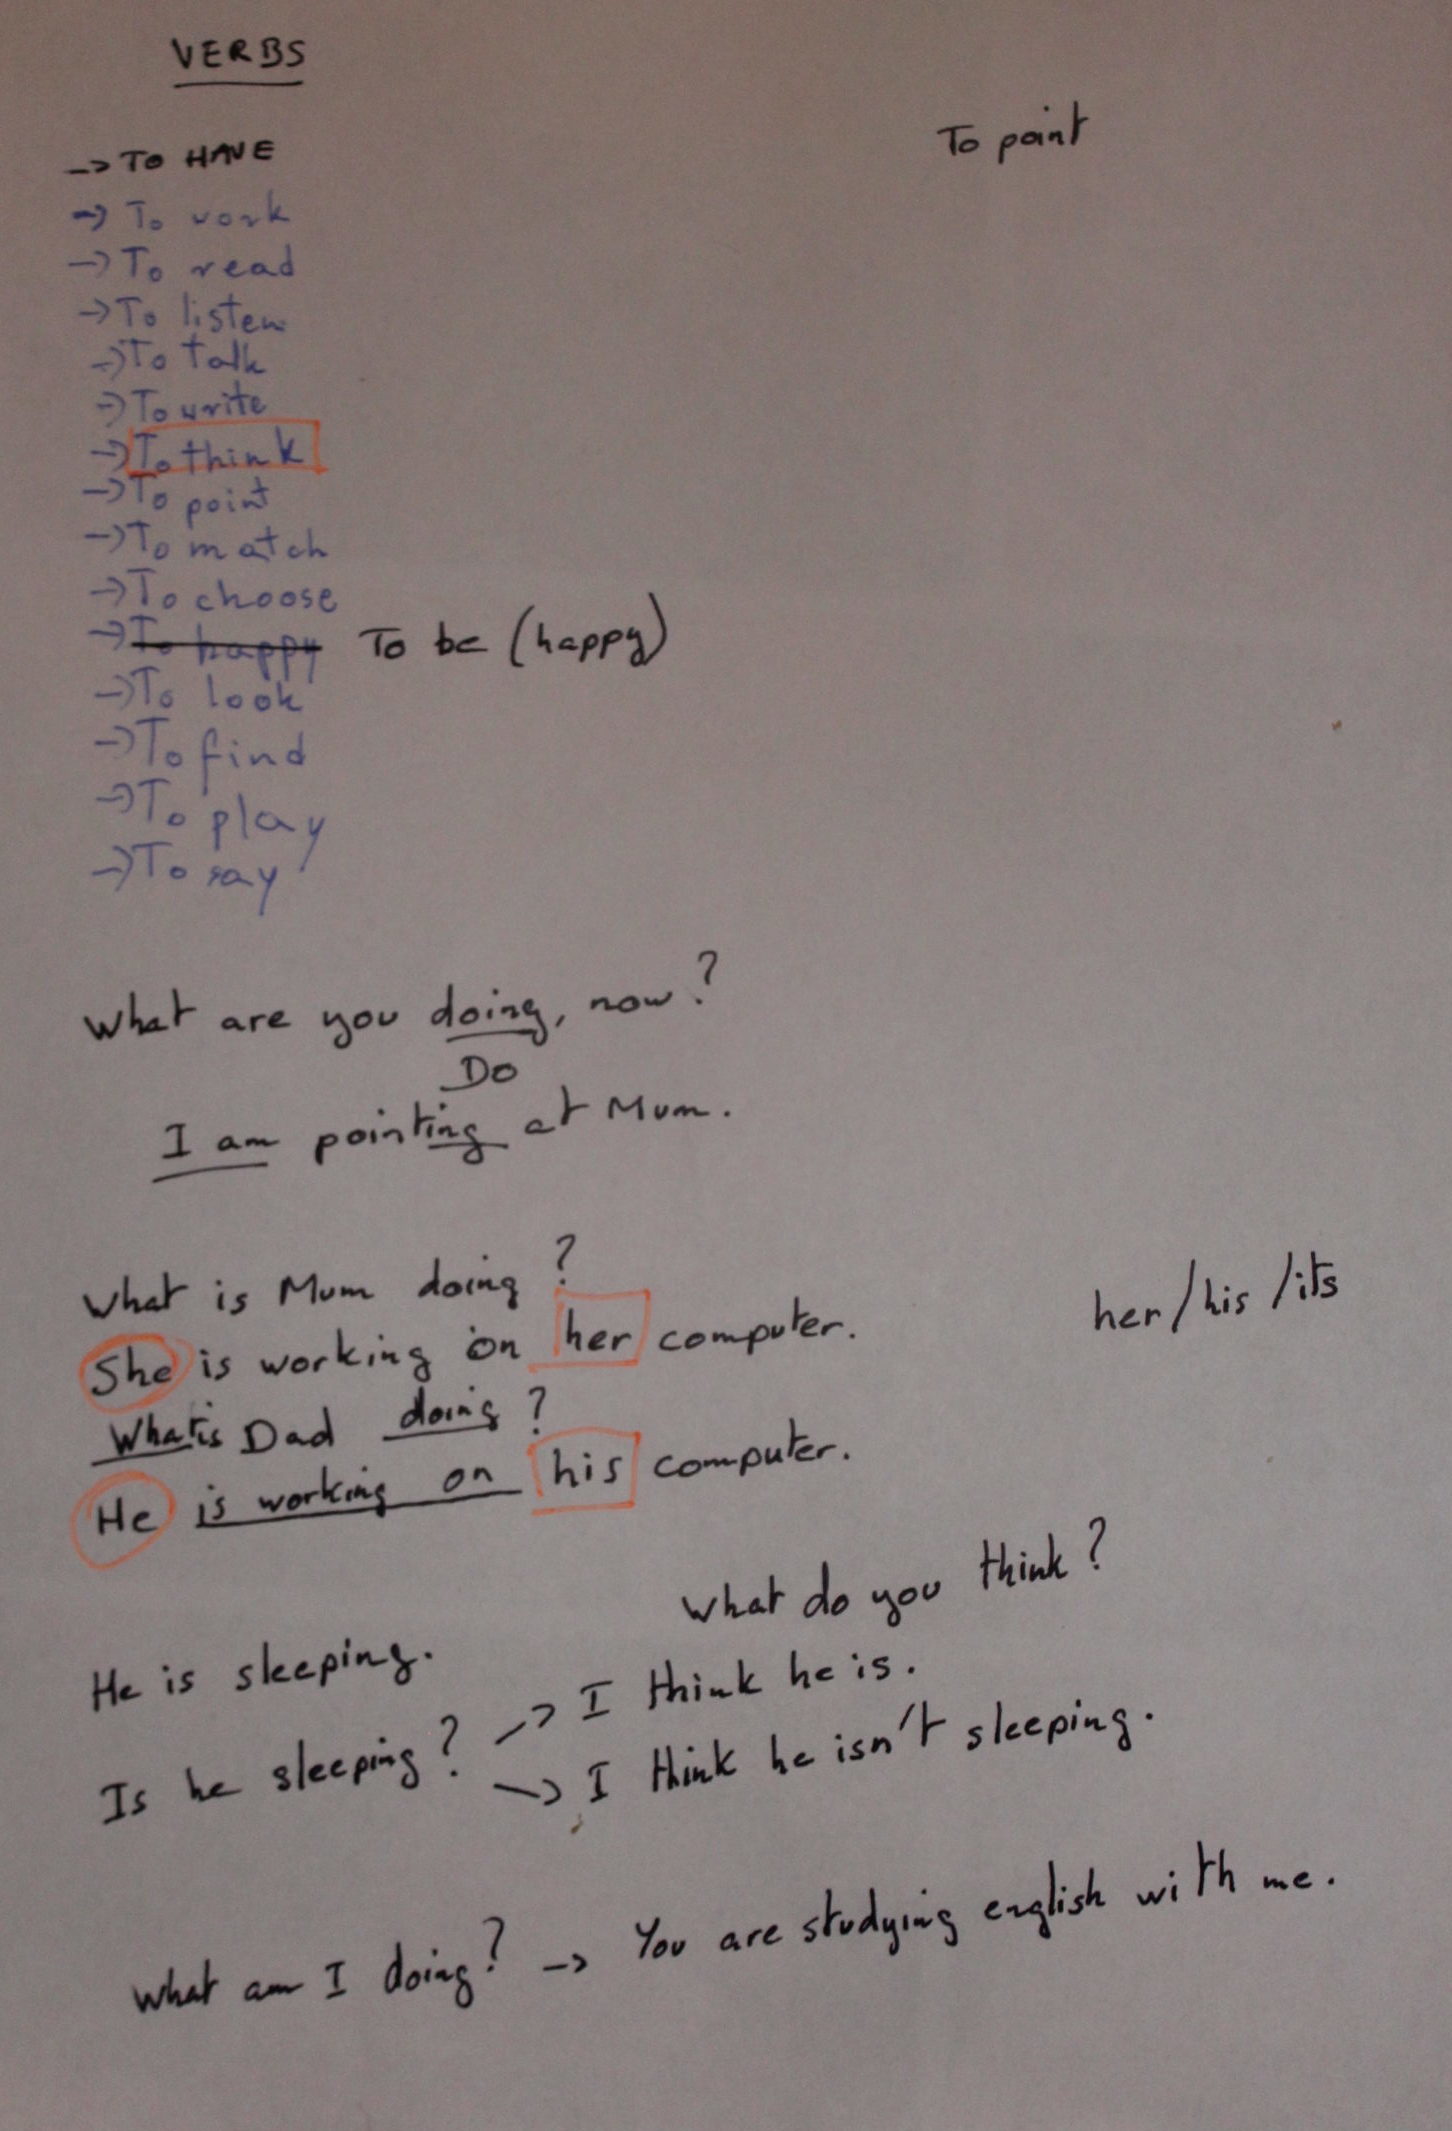 VERBS
To point
-> TO HAVE
-> To work
-> To read
-> To listen
-> To talk
-> To write
-> To think
-> To point
-> To match
-> To choose
-> To happy To be (happy)
-> To look
-> To find
-> To play
-> To say
What are you doing, now?
Do
I am pointing at Mum.
What is Mum doing?
She is working on her computer.
her/his/its
What is Dad doing?
He is working on his computer.
What do you think?
He is sleeping.
-> I think he is.
Is he sleeping?
-> I think he isn't sleeping.
What am I doing? -> You are studying english with me.